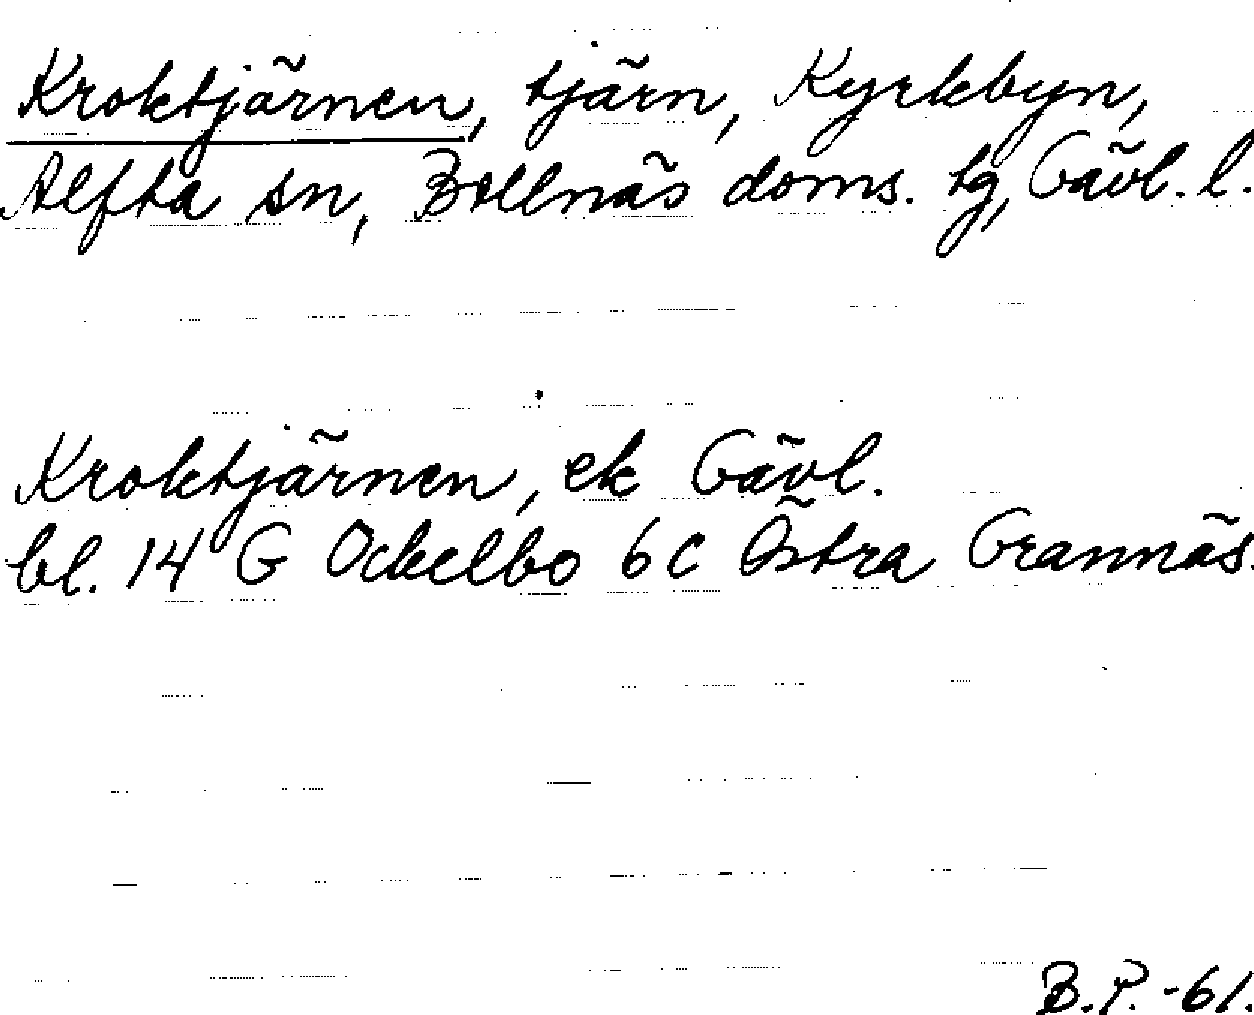 Kroktjärnen, tjärn, Kyrkbyn,
Alfta sn, Bollnäs doms. tg, Gävl. l.
Kroktjärnen, ek Gävl.
bl. 14 G Ockelbo 6 C Östra Grannäs.
B.P. -61.